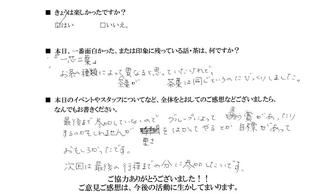 ■ きょうは楽しかったですか？
☑はい　□いいえ。
■ 本日、一番面白かった、または印象に残っている話・茶は、何ですか？
「一芯二葉」
お茶の種類によって異なると思っていたけれど、
茶葉が　茶葉は同じというのにびっくりしました。
■ 本日のイベントやスタッフについてなど、全体をとおしてのご感想などございましたら、
なんでもお書きください。
最後まで参加していないので　グループによって　賞があったり
するのかもしれませんが　をはかしてやるとか　目標があって
おもしろかったです。
次回は最後の行程までの分に参加したいです。
ご協力ありがとうございました！！
ご意見ご感想は、今後の活動に生かしてまいります。